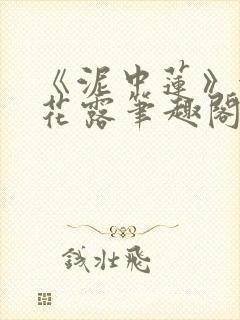 《泥中莲》
花露笔趣阁
钱壮飞